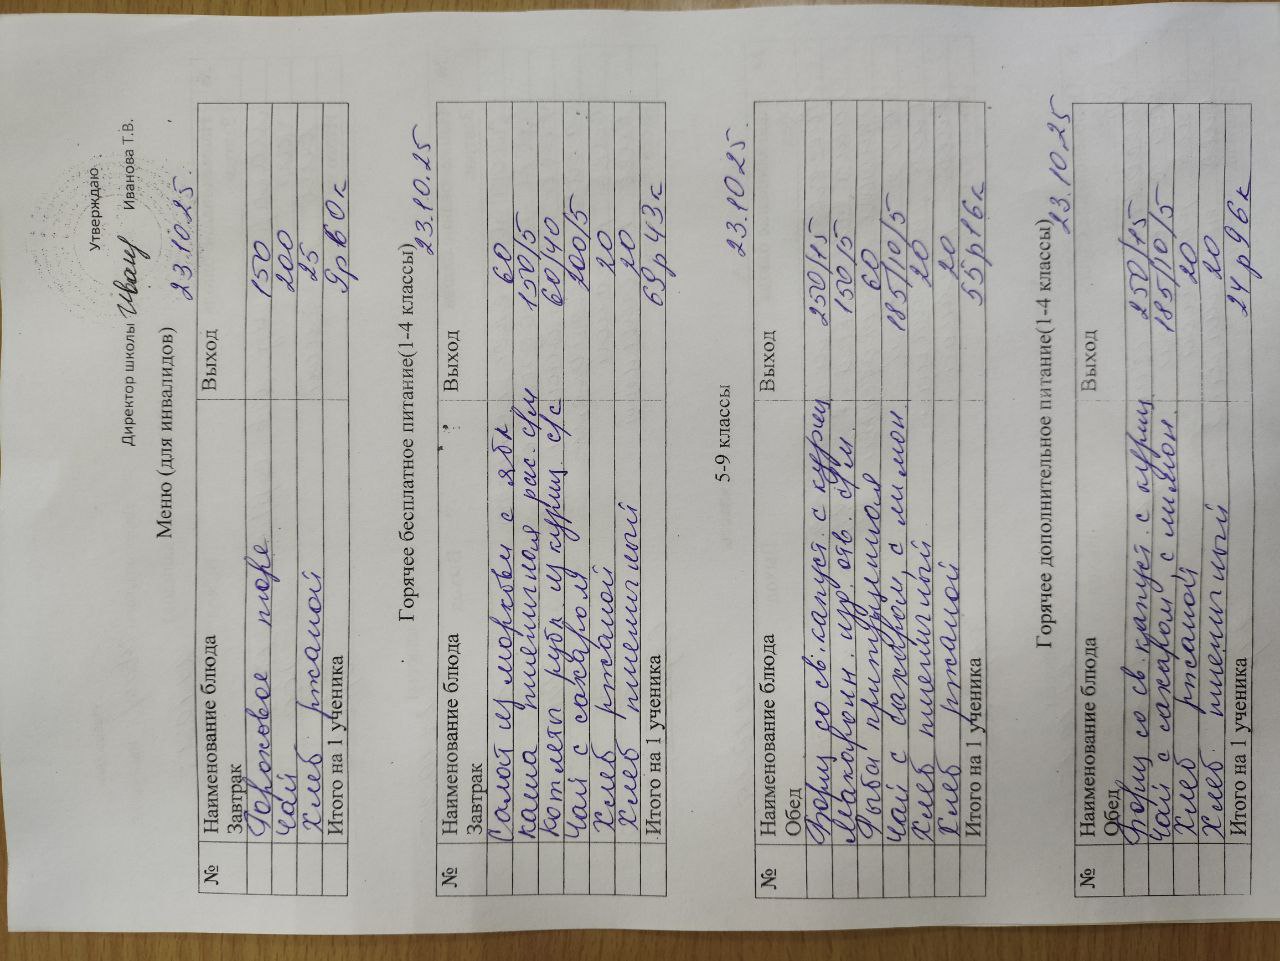 Утверждаю
Директор школы Иванова Т.В.
Меню (для инвалидов) 23.10.25.
№ Наименование блюда Выход
Завтрак
Гороховое пюре 150
Чай 200
Хлеб ржаной 25
Итого на 1 ученика 9р 60к
Горячее бесплатное питание(1-4 классы) 23.10.25
№ Наименование блюда Выход
Завтрак
Салат из моркови с ябл 60
каша пшеничная рас. с/м 150/5
котлеты рубл из куриц. с/с 60/40
Чай с сахаром 200/5
Хлеб ржаной 20
Хлеб пшеничный 20
Итого на 1 ученика 69р 43к
5-9 классы 23.10.25.
№ Наименование блюда Выход
Обед
Борщ со св. капуст. с куриц 250/15
Макарон. изр. отв. с/м. 150/5
Рыба припущенная 60
Чай с сахаром, с лимон 185/10/5
Хлеб пшеничный 20
Хлеб ржаной 20
Итого на 1 ученика 55р 16к
Горячее дополнительное питание(1-4 классы) 23.10.25
№ Наименование блюда Выход
Обед
Борщ со св. капуст. с куриц 250/15
Чай с сахаром, с лимон 185/10/5
Хлеб ржаной 20
Хлеб пшеничный 20
Итого на 1 ученика 24р 96к